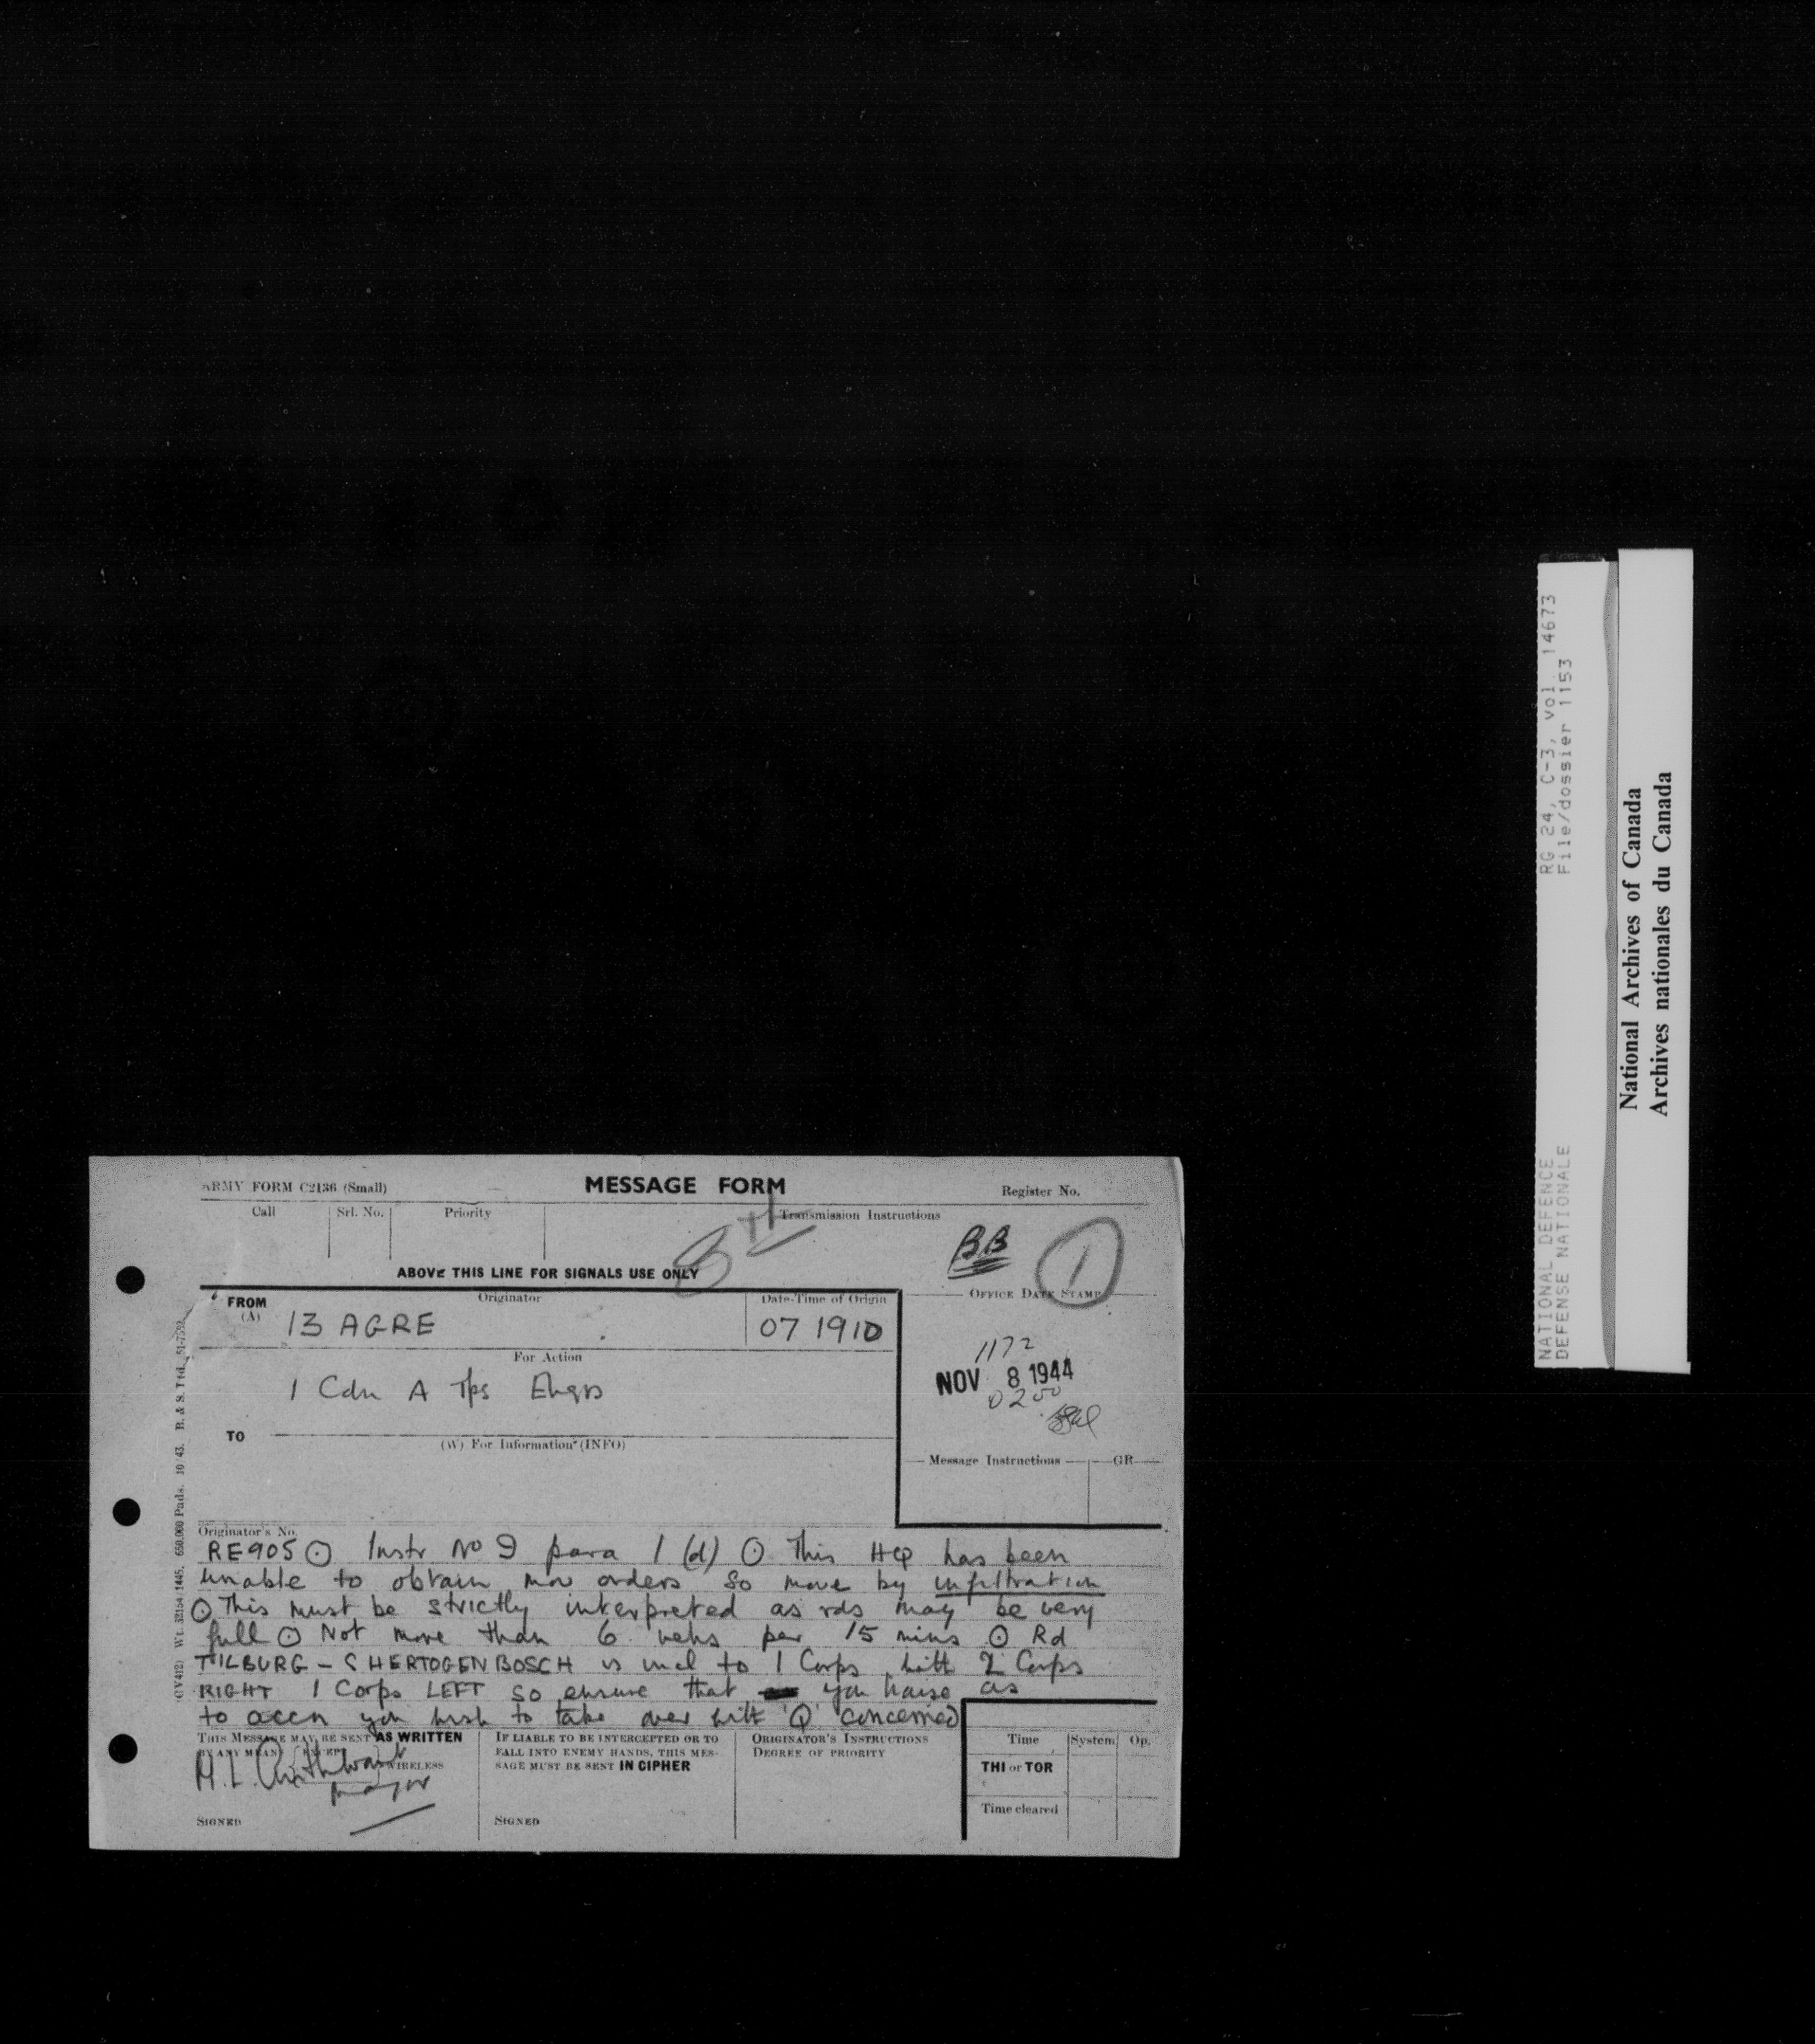 ARMY FORM C2136 (Small)
MESSAGE FORM
Register No.
Call
Srl. No.
Priority
Transmission Instructions
BB
1
ABOVE THIS LINE FOR SIGNALS USE ONLY
FROM
(A)
Originator
Date-Time of Origin
OFFICE DATE STAMP
13 AGRE
07 1910
For Action
1172
NOV 8 1944
0200
1 Cdn A Tps Engrs
TO
(W) For Information (INFO)
Message Instructions
GR
(IV412) Wt. 32154/1445. 650,000 Pads. 10/43. B. & S. Ltd. 51-7532.
Originator's No.
RE905 ⊙ Instr No 9 para 1 (d) ⊙ This HQ has been
unable to obtain mov orders so move by infiltration
⊙ This must be strictly interpreted as rds may be very
full ⊙ Not more than 6 vehs per 15 mins ⊙ Rd
TILBURG - S HERTOGENBOSCH is incl to 1 Corps with 2 Corps
RIGHT 1 Corps LEFT so ensure that you liaise as
to accn you wish to take over with 'Q' concerned
THIS MESSAGE MAY BE SENT AS WRITTEN
BY ANY MEANS EXCEPT
WIRELESS
M. L.
Major
SIGNED
IF LIABLE TO BE INTERCEPTED OR TO
FALL INTO ENEMY HANDS, THIS MES-
SAGE MUST BE SENT IN CIPHER
SIGNED
ORIGINATOR'S INSTRUCTIONS
DEGREE OF PRIORITY
Time
System
Op.
THI or TOR
Time cleared
RG 24, C-3, vol. 14673
File/dossier 1153
NATIONAL DEFENCE
DEFENSE NATIONALE
National Archives of Canada
Archives nationales du Canada